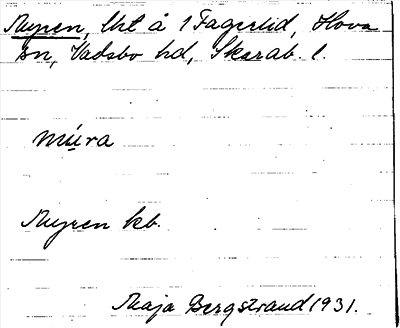 Myren, lht å 1 Fagerlid, Hova
sn, Vadsbo hd, Skarab. l.
mu̲ra
Myren kb.
Maja Bergstrand 1931.